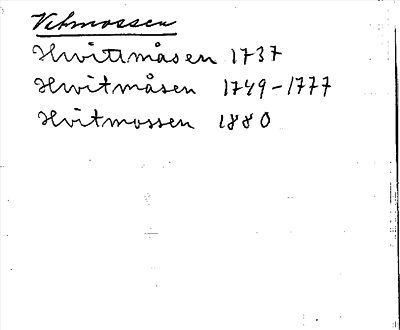 Vitmossen
Hwittmåsen 1737
Hwitmåsen 1749-1777
Hvitmossen 1880